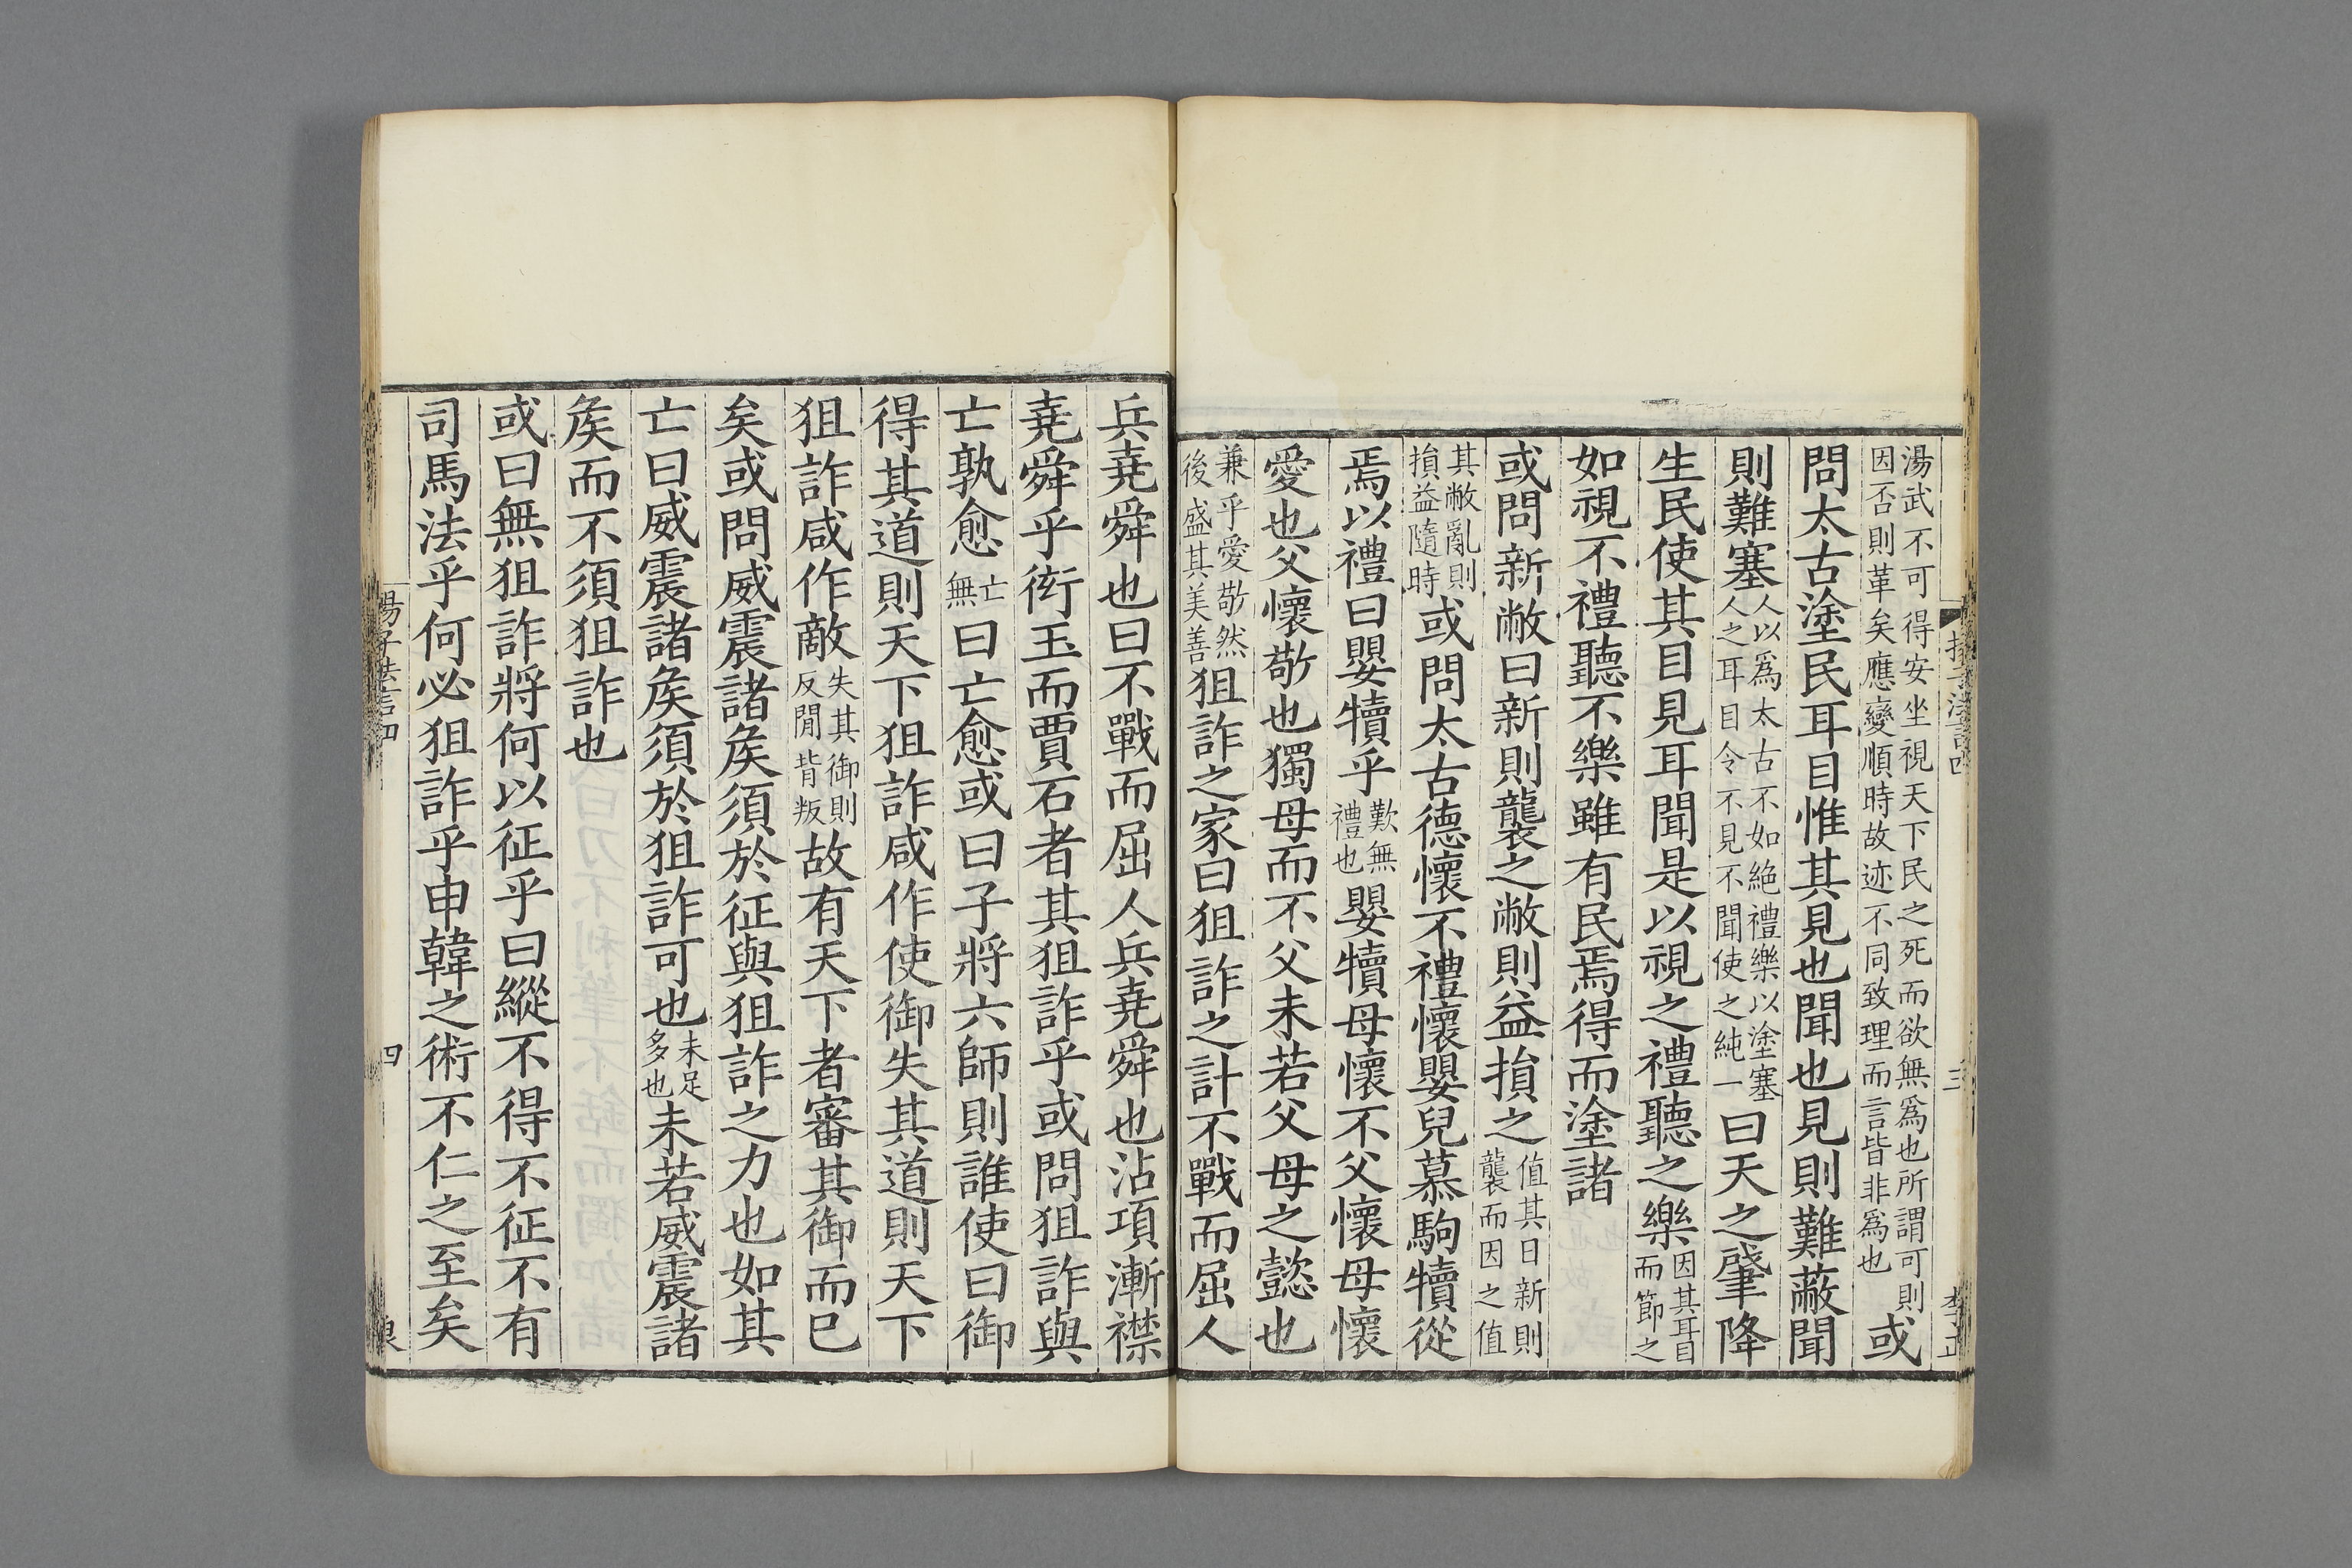 湯武不可得安坐視天下民之死而欲無爲也所謂可則因否則革矣應變順時故迹不同致理而言皆非爲也或
問太古塗民耳目惟其見也聞也見則難蔽聞
則難塞人以爲太古不如絶禮樂以塗塞人之耳目令不見不聞使之純一曰天之肈降
生民使其目見耳聞是以視之禮聽之樂因其耳目而節之
如視不禮聽不樂雖有民焉得而塗諸
或問新敝曰新則襲之敝則益損之值其日新則襲而因之值
其敝亂則損益隨時或問太古德懷不禮懷嬰兒慕駒犢從
焉以禮曰嬰犢乎歎無禮也嬰犢母懷不父懷母懷
愛也父懷敬也獨母而不父未若父母之懿也
兼乎愛敬然後盛其美善狙詐之家曰狙詐之計不戰而屈人
兵堯舜也曰不戰而屈人兵堯舜也沾項漸襟
堯舜乎衒玉而賈石者其狙詐乎或問狙詐與
亡孰愈亡無曰亡愈或曰子將六師則誰使曰御
得其道則天下狙詐咸作使御失其道則天下
狙詐咸作敵失其御則反閒背叛故有天下者審其御而已
矣或問威震諸矦須於征與狙詐之力也如其
亡曰威震諸矦須於狙詐可也未足多也未若威震諸
矦而不須狙詐也
或曰無狙詐將何以征乎曰縱不得不征不有
司馬法乎何必狙詐乎申韓之術不仁之至矣
四